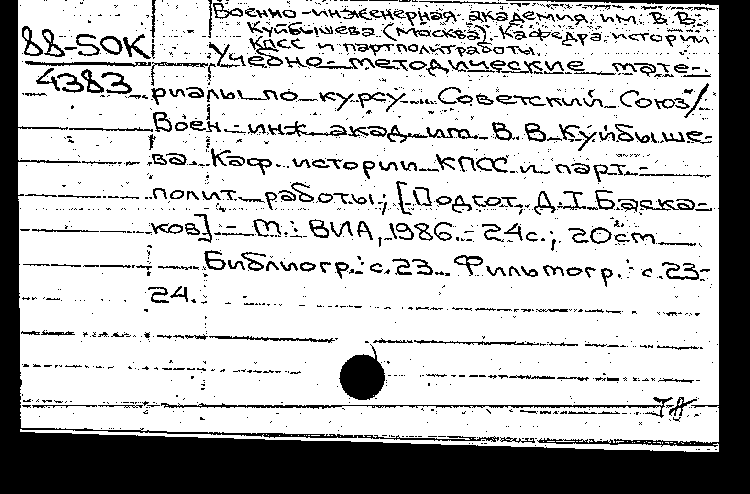 Военно-инженерная академия им. В.В.
Куйбышева (Москва). Кафедра истории
КПСС и партполитработы.
88-50К
4383
Учебно-методические мате-
риалы по курсу „Советский Союз"/
Воен.-инж. акад. им. В.В. Куйбыше-
ва. Каф. истории КПСС и парт.-
полит. работы; [Подгот. Д.Т. Баска-
ков] - М.: ВИА, 1986. - 24с.; 20см
Библиогр.: с.23. Фильмогр.: с.23-
24.